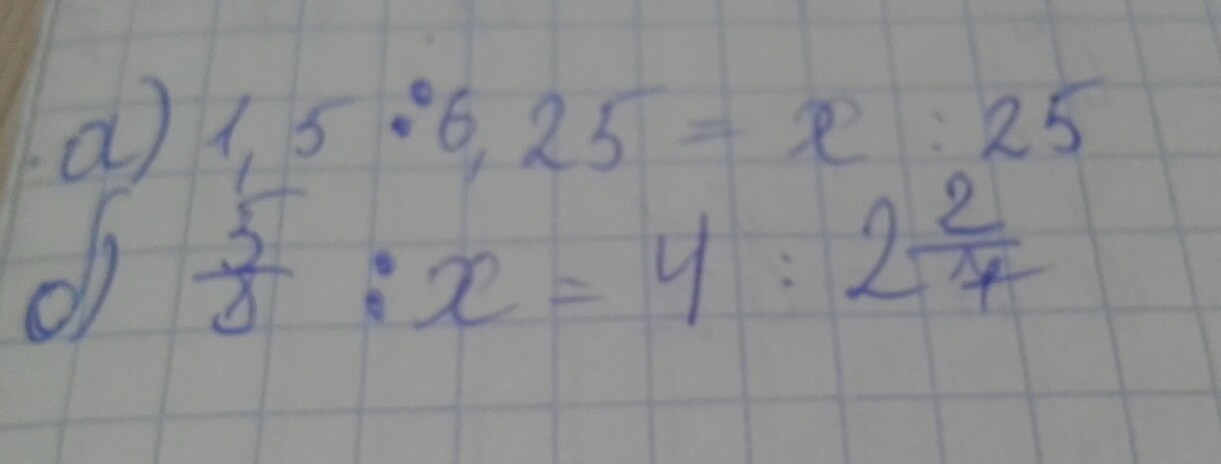 а) 1,5 : 6,25 = x : 25
б) 5/8 : x = 4 : 2 2/7